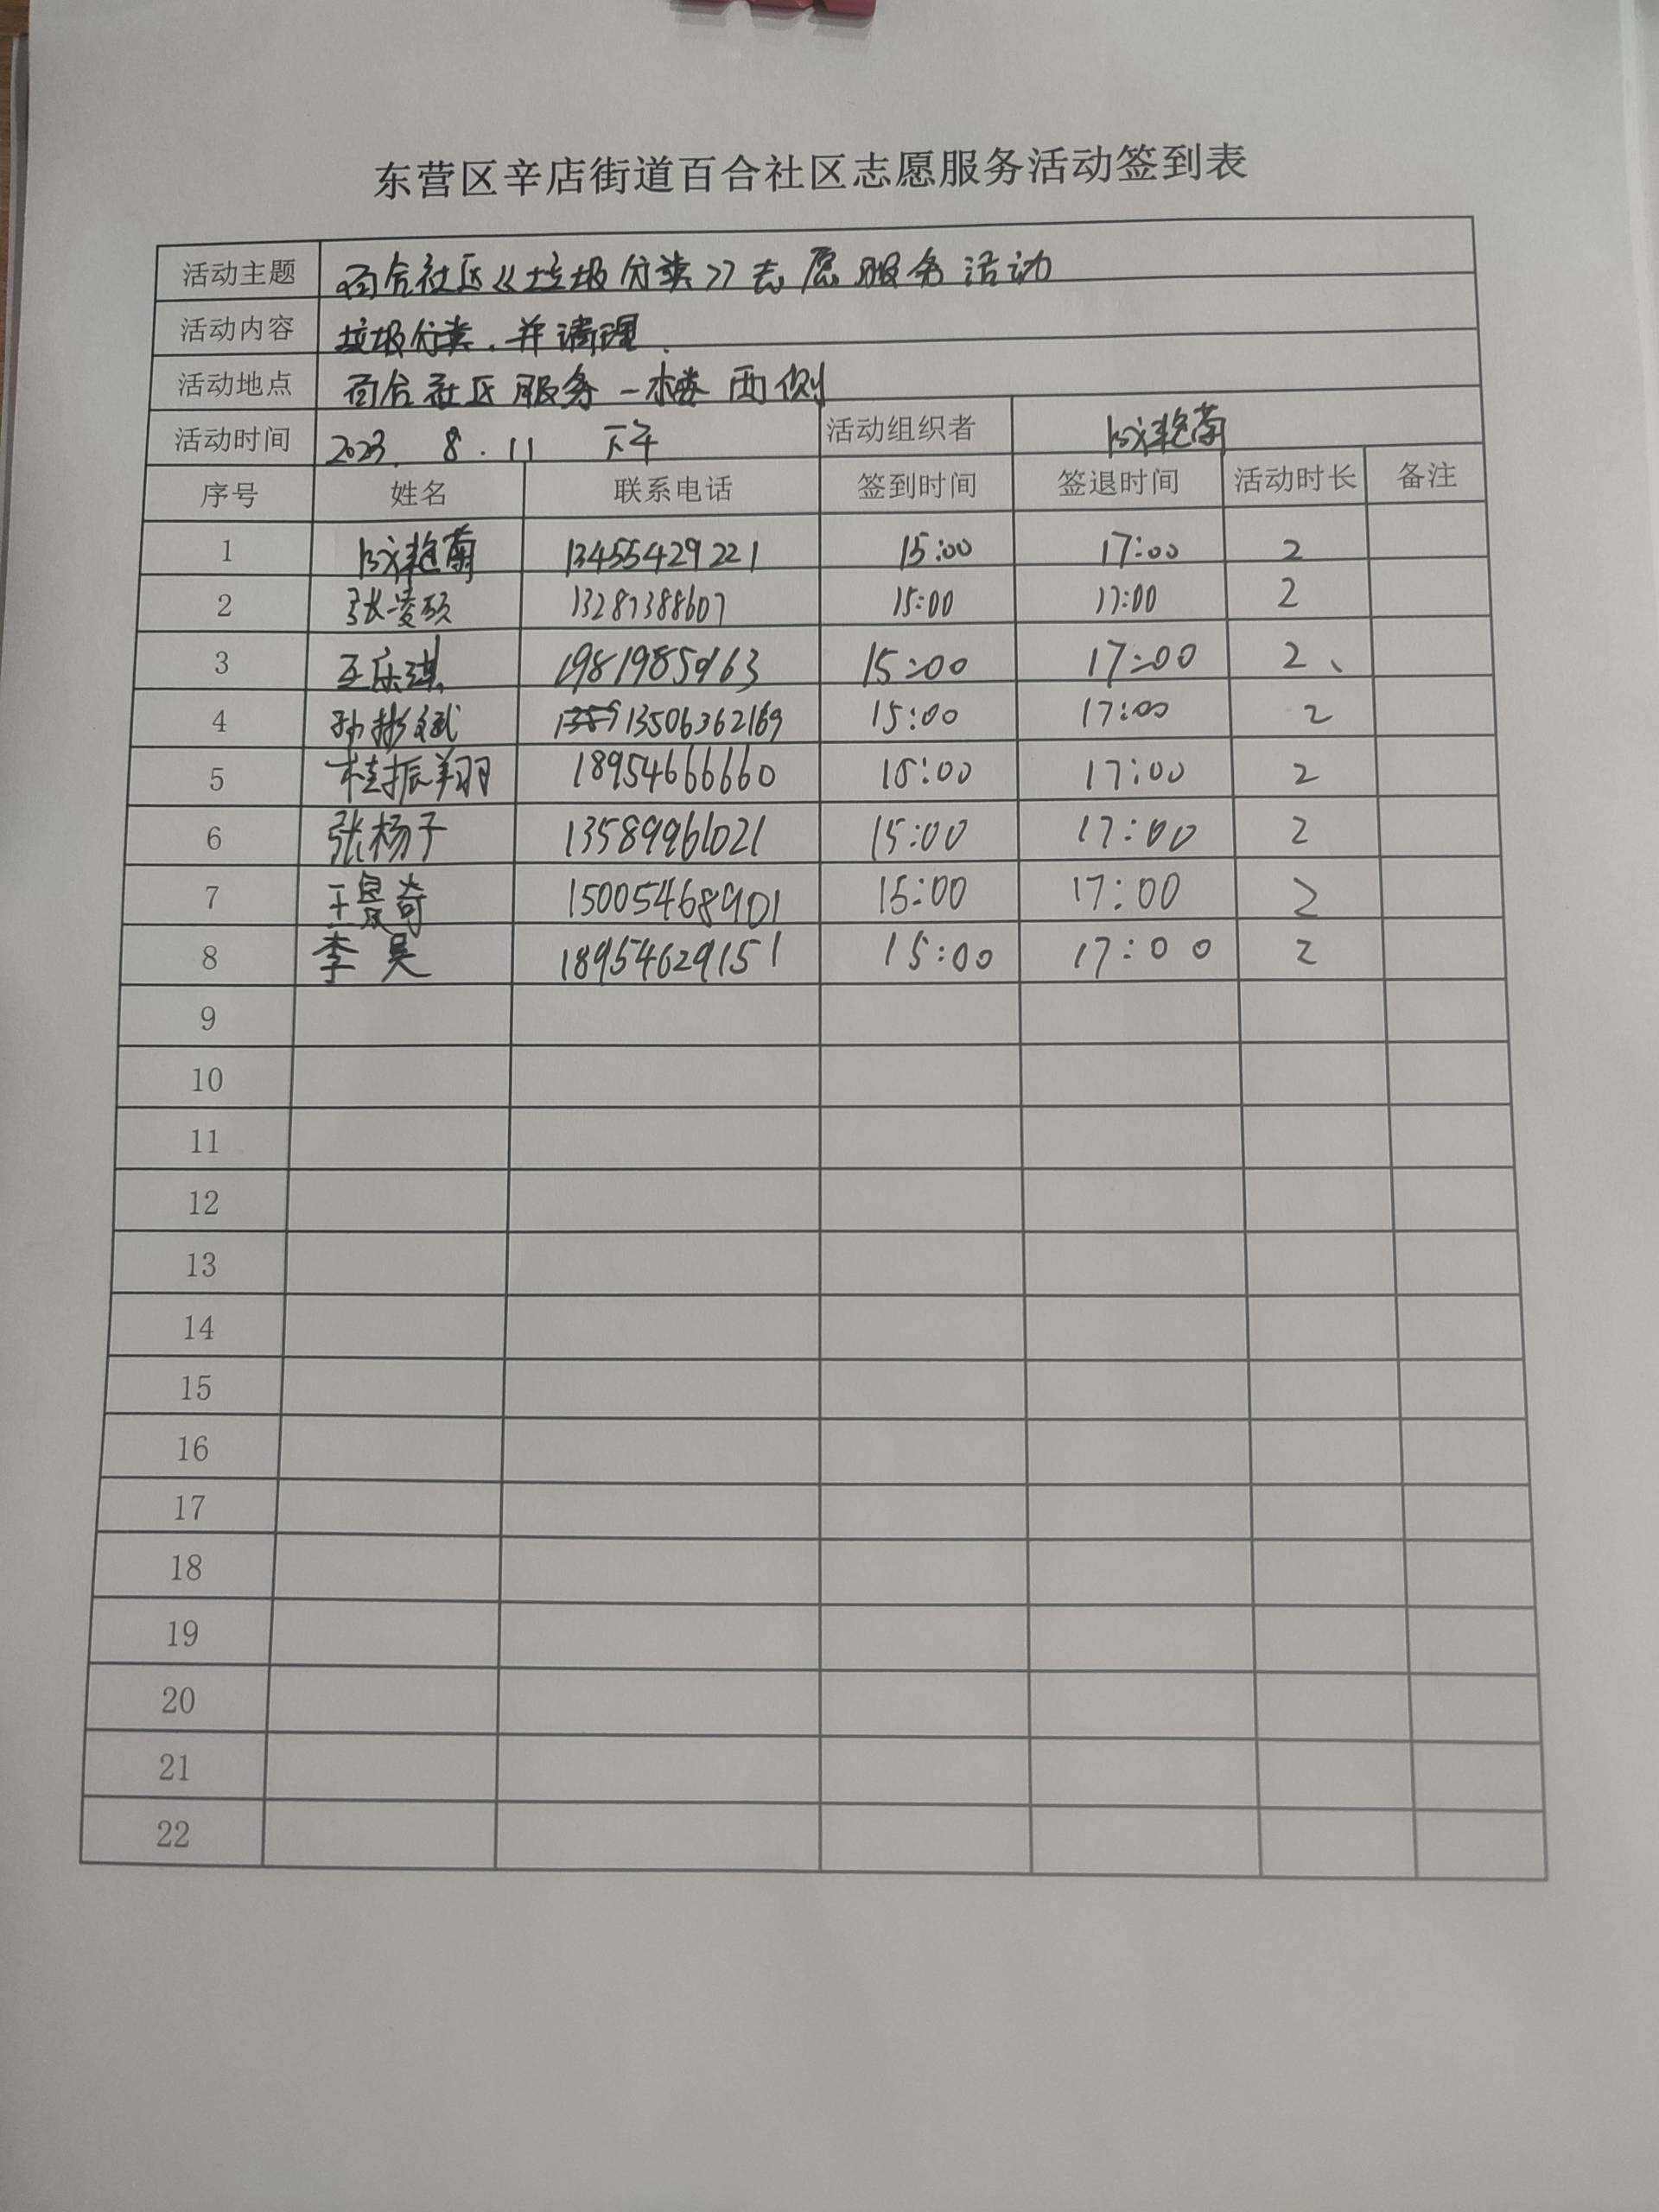 东营区辛店街道百合社区志愿服务活动签到表
活动主题 百合社区《垃圾分类》志愿服务活动
活动内容 垃圾分类.并清理.
活动地点 百合社区服务一楼西侧
活动时间 2023. 8. 11 下午 活动组织者
序号 姓名 联系电话 签到时间 签退时间 活动时长 备注
1 13455429221 15:00 17:00 2
2 张凌硕 13287388607 15:00 17:00 2
3 王乐琪 15:00 17:00 2、
4 孙彬斌 13506362169 15:00 17:00 2
5 桂振翔 18954666660 15:00 17:00 2
6 张杨子 13589961021 15:00 17:00 2
7 王昱奇 15005468901 15:00 17:00 2
8 李昊 18954629151 15:00 17:00 2
9
10
11
12
13
14
15
16
17
18
19
20
21
22